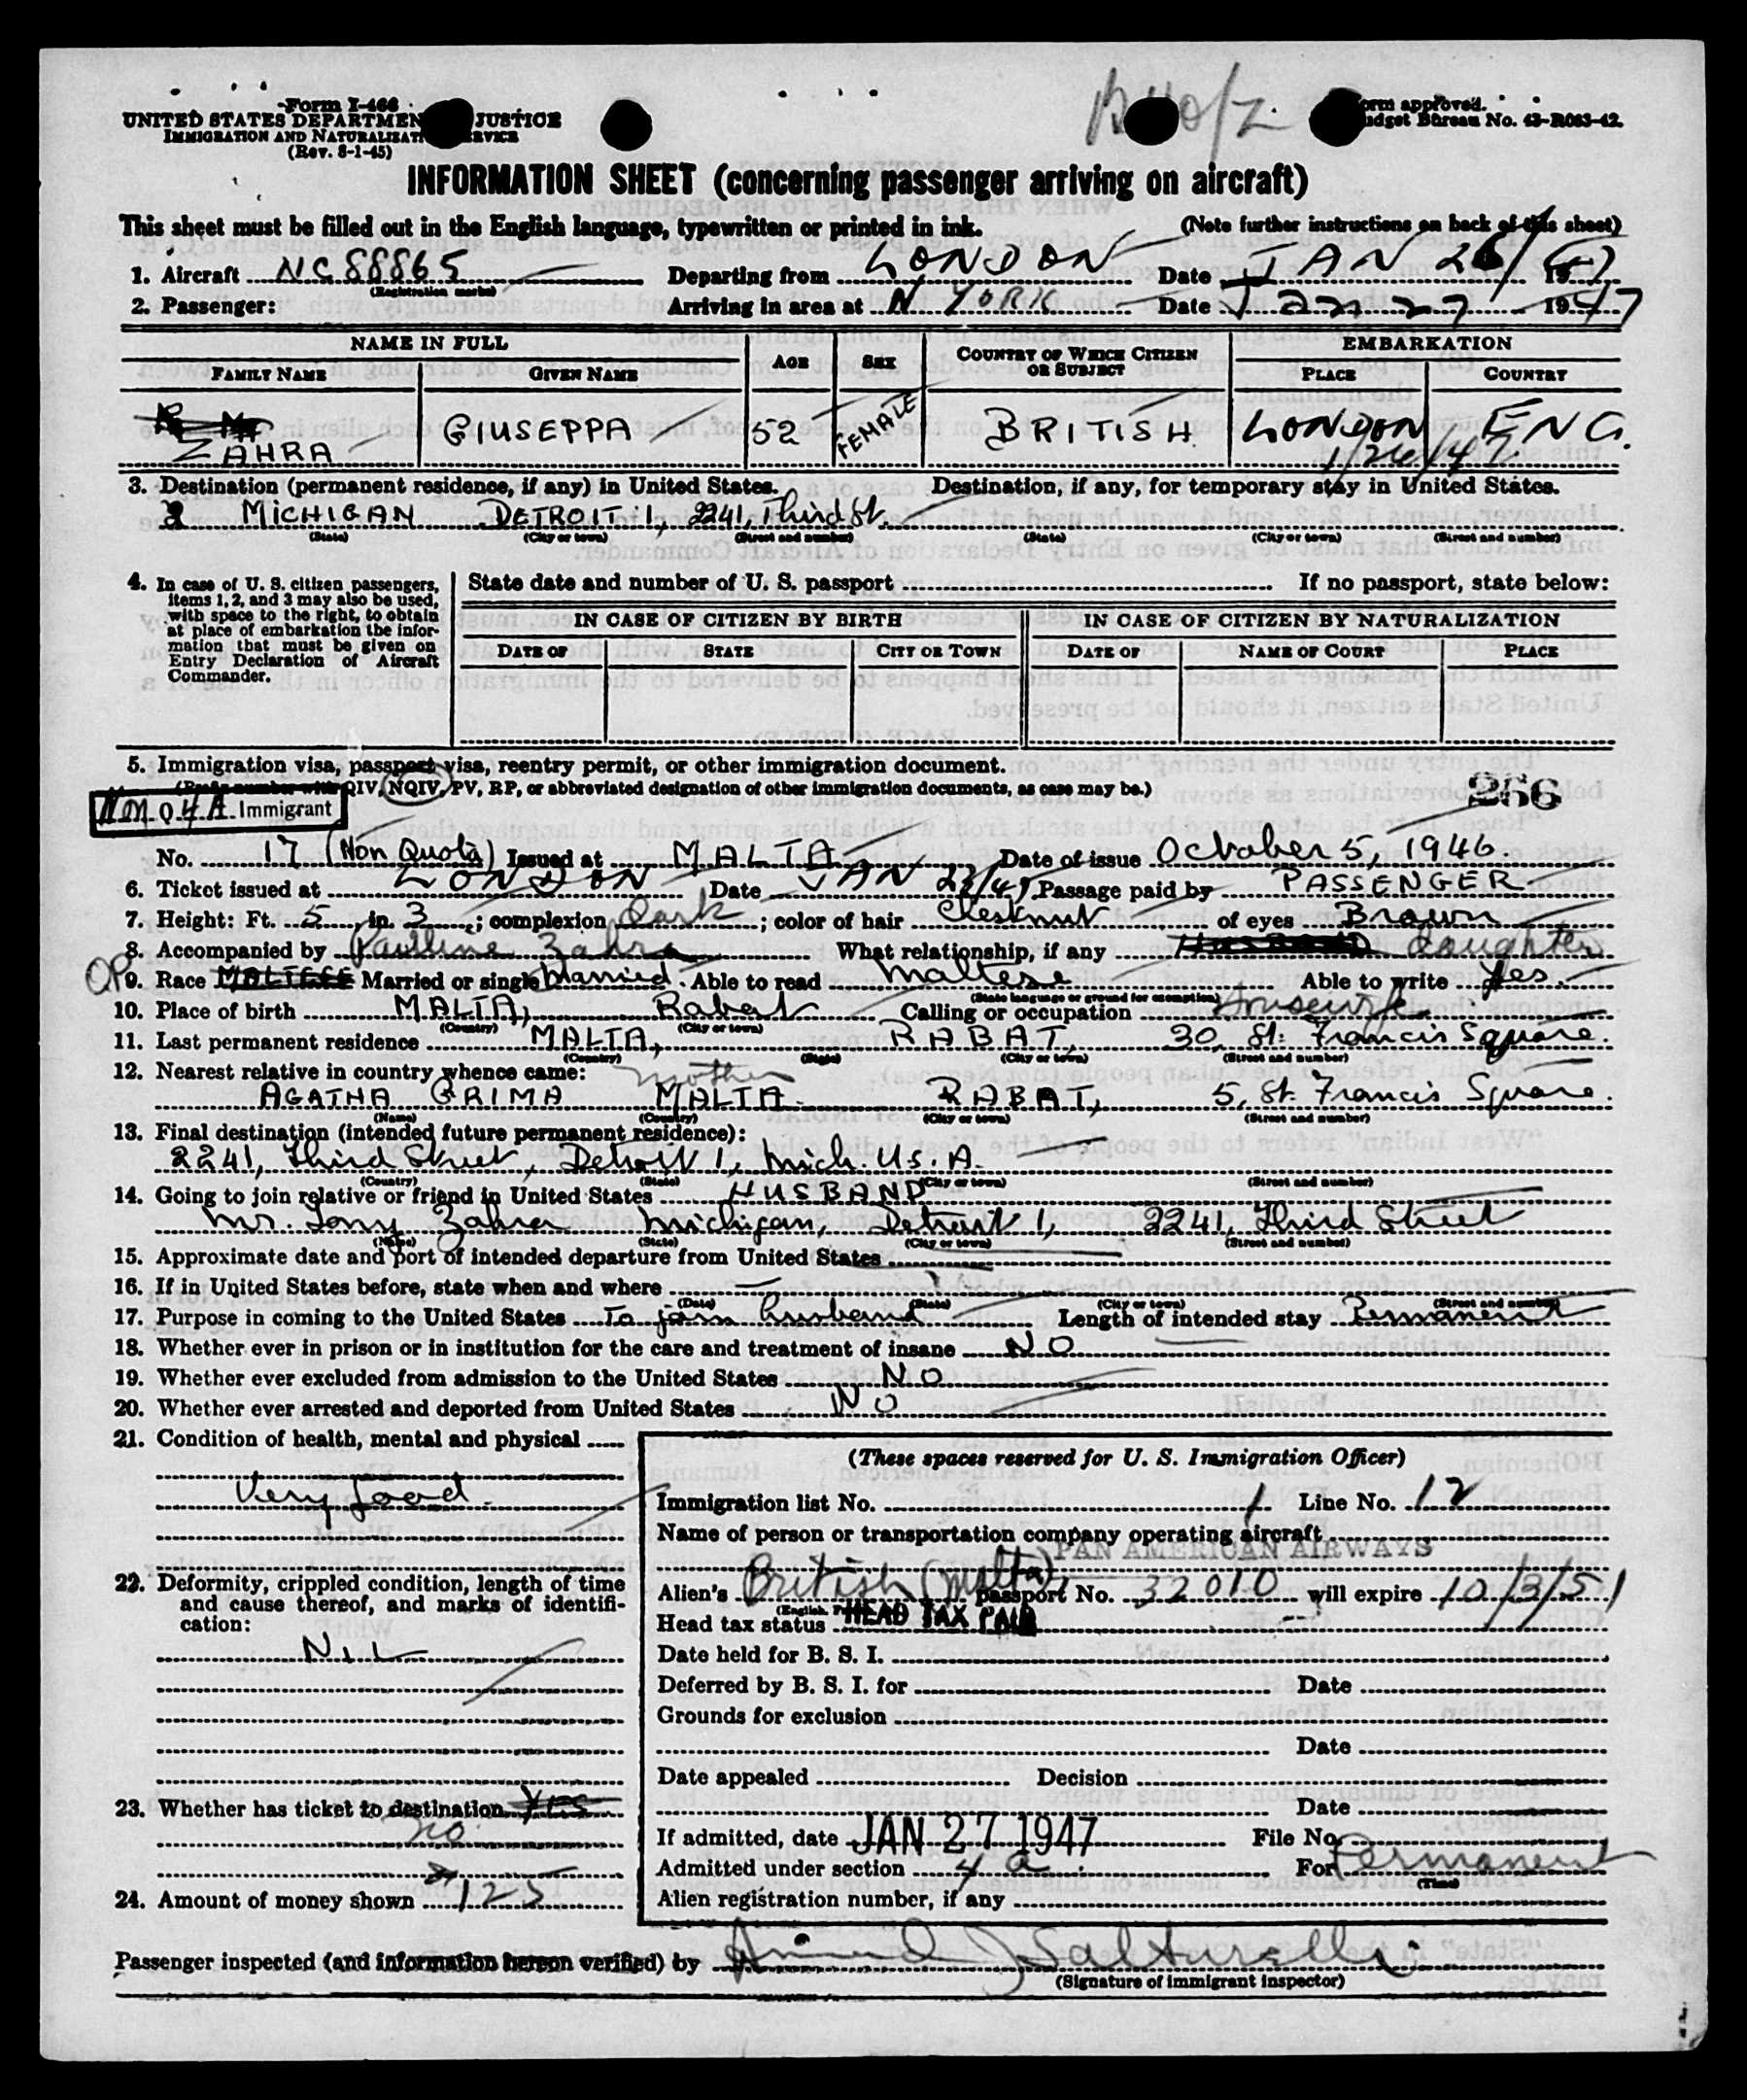 Form I-466
UNITED STATES DEPARTMEN JUSTICE
IMMIGRATION AND NATURALIZATI ERVICE
(Rev. 8-1-45)
orm approved.
udget Bureau No. 43-R083-42.
INFORMATION SHEET (concerning passenger arriving on aircraft)
This sheet must be filled out in the English language, typewritten or printed in ink. (Note further instructions on back of this sheet)
1. Aircraft NC88865 Departing from LONDON Date JAN 26/ 1947
(Registration marks)
2. Passenger: Arriving in area at N YORK Date Jan 27 1947
NAME IN FULL AGE SEX COUNTRY OF WHICH CITIZEN OR SUBJECT EMBARKATION
FAMILY NAME GIVEN NAME PLACE COUNTRY
ZAHRA GIUSEPPA 52 FEMALE BRITISH LONDON ENG.
1/26/47
3. Destination (permanent residence, if any) in United States. Destination, if any, for temporary stay in United States.
MICHIGAN DETROIT 1, 2241, Third St.
(State) (City or town) (Street and number) (State) (City or town) (Street and number)
4. In case of U. S. citizen passengers, items 1, 2, and 3 may also be used, with space to the right, to obtain at place of embarkation the information that must be given on Entry Declaration of Aircraft Commander.
State date and number of U. S. passport If no passport, state below:
IN CASE OF CITIZEN BY BIRTH IN CASE OF CITIZEN BY NATURALIZATION
DATE OF STATE CITY OR TOWN DATE OF NAME OF COURT PLACE
5. Immigration visa, passport visa, reentry permit, or other immigration document.
(Prefix number with QIV, NQIV, PV, RP, or abbreviated designation of other immigration documents, as case may be.)
266
N.M. Q 4A Immigrant
No. 17 (Non Quota) Issued at MALTA Date of issue October 5, 1946.
6. Ticket issued at LONDON Date JAN 23/47 Passage paid by PASSENGER
7. Height: Ft. 5 in. 3; complexion dark; color of hair Chestnut of eyes Brown
8. Accompanied by Paulline Zahra What relationship, if any HUSBAND daughter
9. Race MALTESE Married or single Married. Able to read Maltese Able to write Yes.
(State language or ground for exemption)
10. Place of birth MALTA, Rabat Calling or occupation Housewife
(Country) (City or town)
11. Last permanent residence MALTA, RABAT, 30, St. Francis Square.
(Country) (State) (City or town) (Street and number)
12. Nearest relative in country whence came: mother
AGATHA GRIMA MALTA. RABAT, 5, St. Francis Square.
(Name) (Country) (City or town) (Street and number)
13. Final destination (intended future permanent residence):
2241, Third Street, Detroit 1, Mich. U.S.A.
(Country) (State) (City or town) (Street and number)
14. Going to join relative or friend in United States HUSBAND
Mr. Tony Zahra Michigan, Detroit 1, 2241, Third Street
(Name) (State) (City or town) (Street and number)
15. Approximate date and port of intended departure from United States
16. If in United States before, state when and where
(Date) (State) (City or town) (Street and number)
17. Purpose in coming to the United States To join husband Length of intended stay Permanent
18. Whether ever in prison or in institution for the care and treatment of insane NO
19. Whether ever excluded from admission to the United States NO
20. Whether ever arrested and deported from United States NO
21. Condition of health, mental and physical
Very good.
22. Deformity, crippled condition, length of time and cause thereof, and marks of identification:
NIL
23. Whether has ticket to destination YES
no
24. Amount of money shown 125
(These spaces reserved for U. S. Immigration Officer)
Immigration list No. 1 Line No. 12
Name of person or transportation company operating aircraft
PAN AMERICAN AIRWAYS
Alien's British (Malta) passport No. 32010 will expire 10/3/51
Head tax status HEAD TAX PAID
Date held for B. S. I.
Deferred by B. S. I. for Date
Grounds for exclusion
Date
Date appealed Decision
Date
If admitted, date JAN 27 1947 File No.
Admitted under section 4 a. For Permanent
(Time)
Alien registration number, if any
Passenger inspected (and information hereon verified) by J Salturelli
(Signature of immigrant inspector)